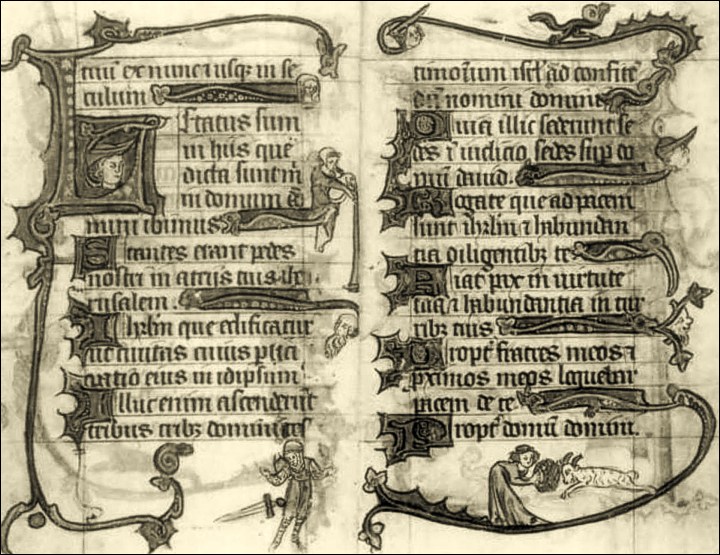 tuū ex nunc ⁊ usqꝫ in se
culum
Letatus sum
in hiis que
dicta sunt m̄
in domum do
mini ibimus
Stantes erant pedes
nostri in atriis tuis ihe
rusalem
Ihrlm̄ que edificatur
ut ciuitas cuius ꝑtici
patio eius in idipsum
Illuc enim ascenderūt
tribus tribꝫ domini tes
timonium isrl̄ ad confitē
dū nomini domini
Quia illic sederunt se
des ī iudicio sedes suꝑ do
mū dauid.
Rogate que ad pacem
sunt ihrlm̄ ⁊ habundan
tia diligentibꝫ te
Fiat pax in uirtute
tua ⁊ habundantia in tur
ribꝫ tuis
Propt̄ fratres meos ⁊
ꝓximos meos loquebar
pacem de te
Propt̄ domū domini.